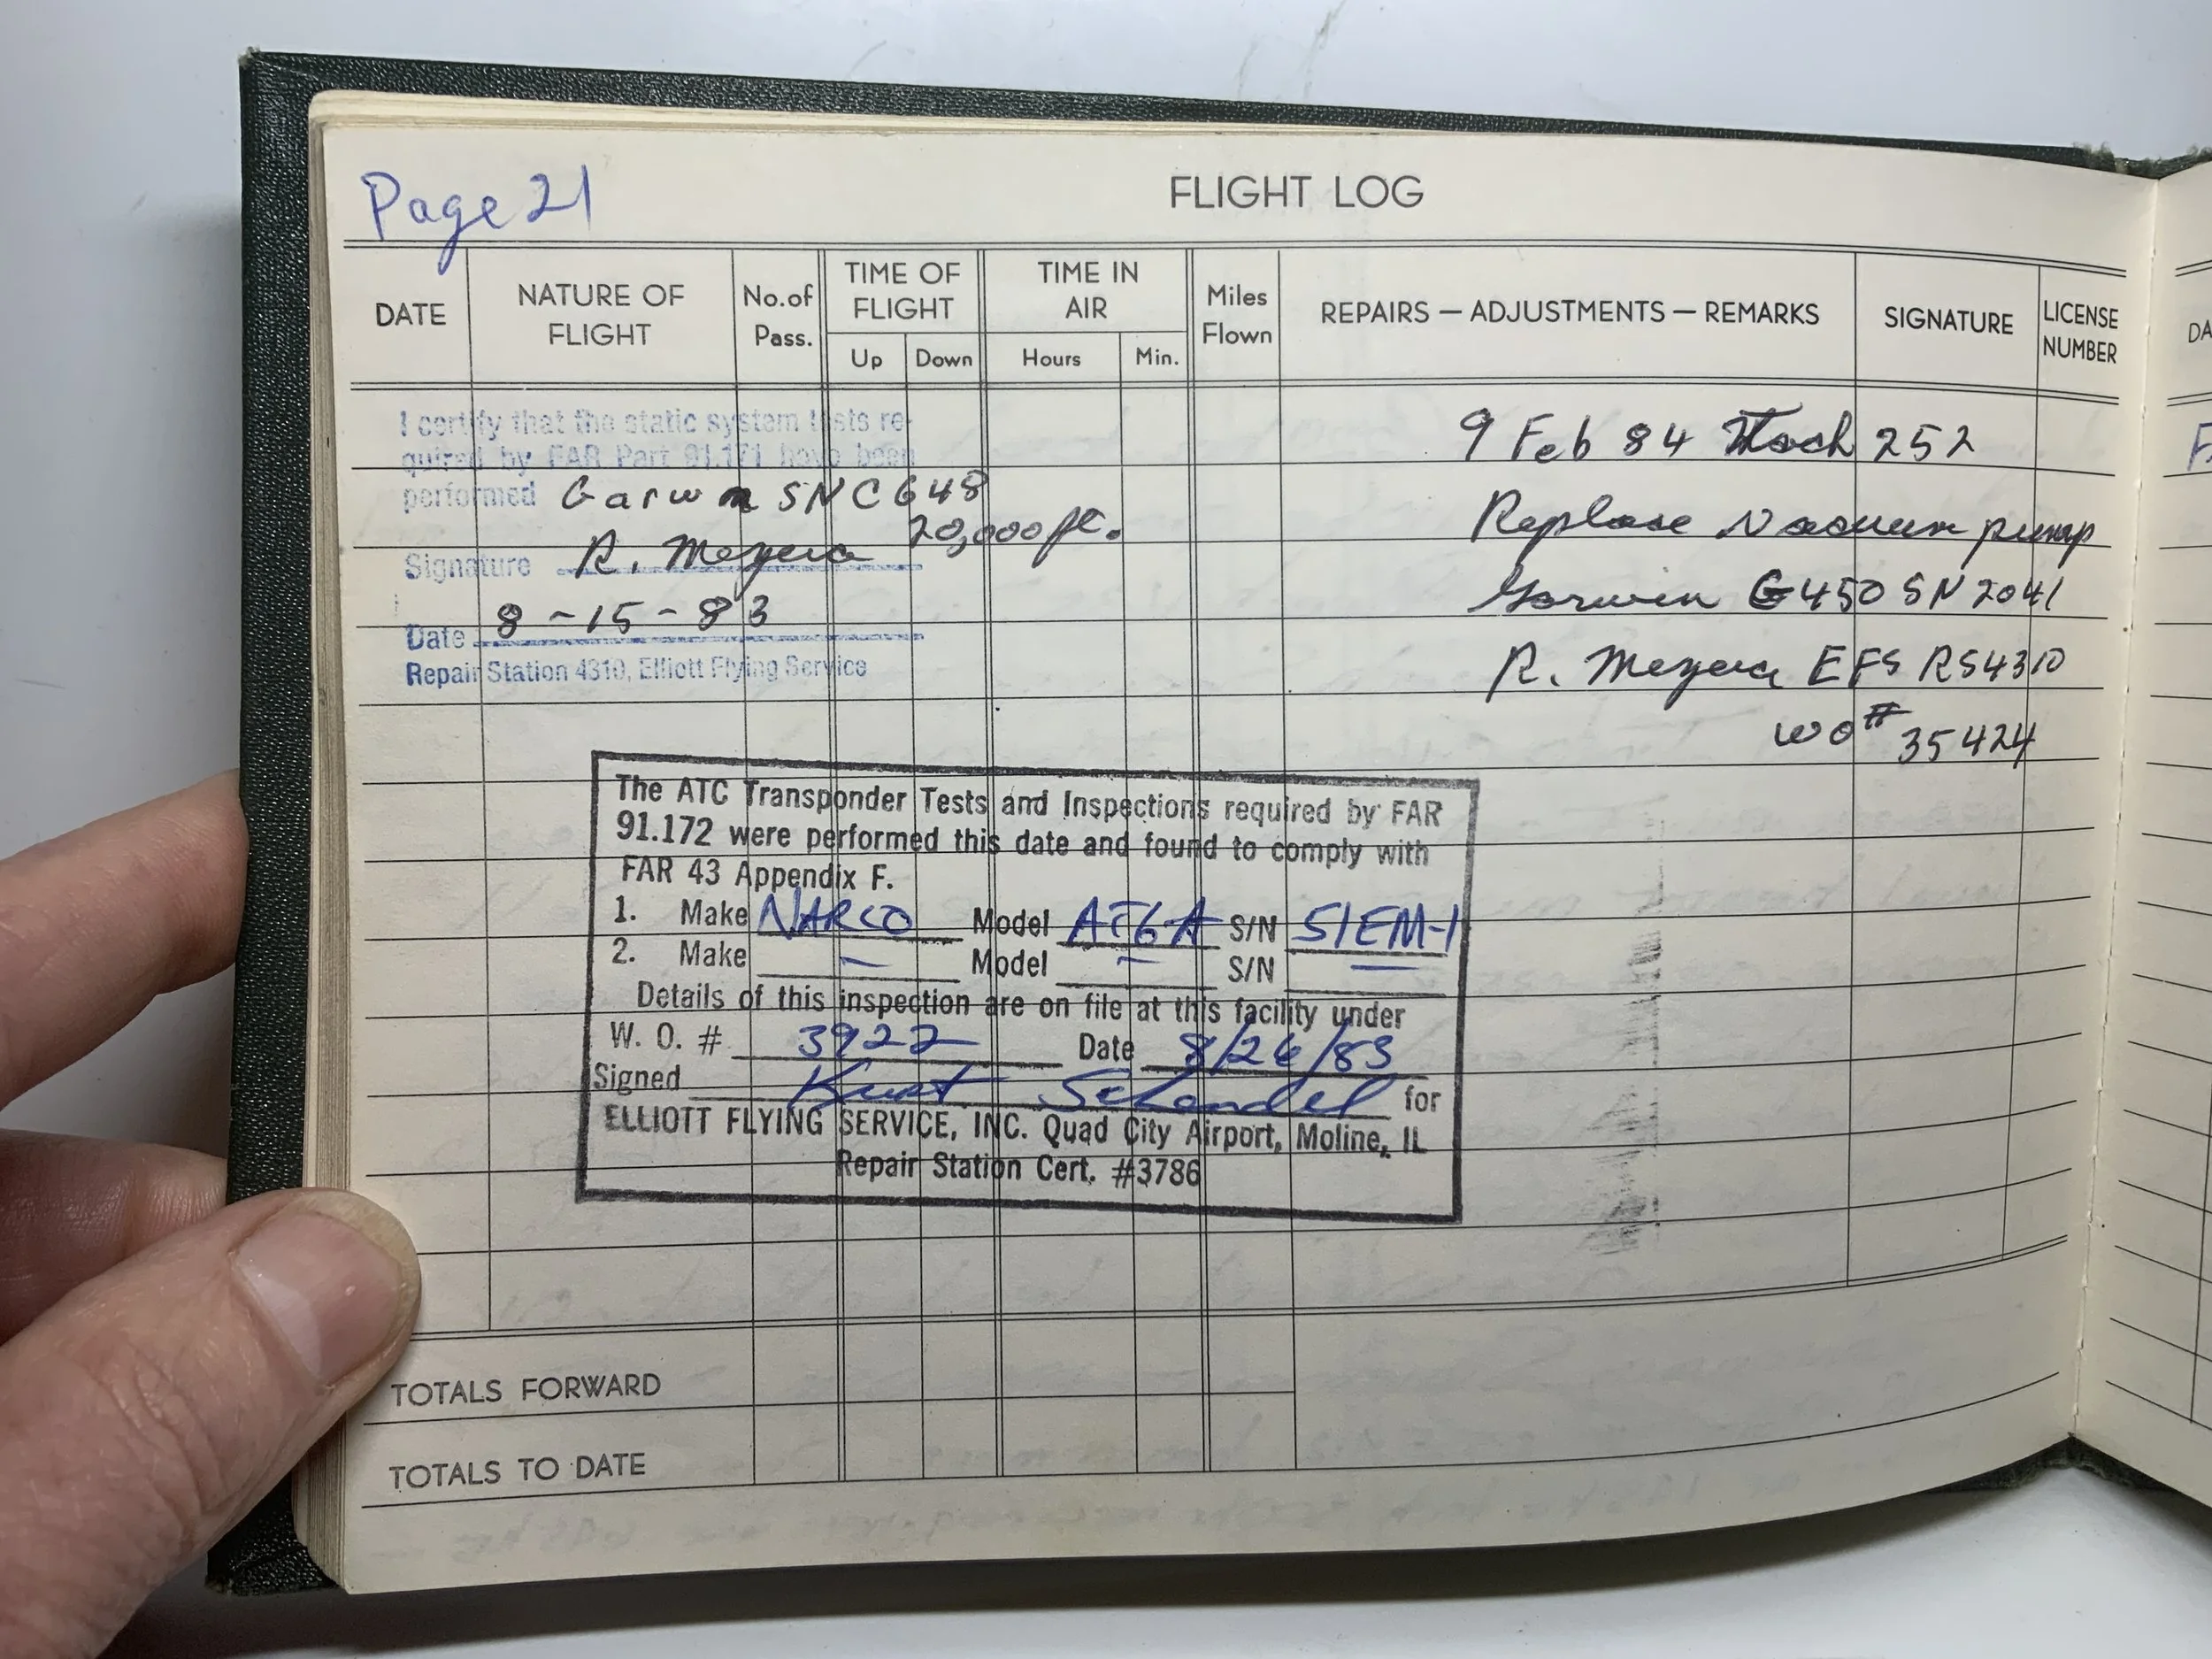 Page 21
FLIGHT LOG
DATE
NATURE OF FLIGHT
No. of Pass.
TIME OF FLIGHT
Up Down
TIME IN AIR
Hours Min.
Miles Flown
REPAIRS — ADJUSTMENTS — REMARKS
SIGNATURE
LICENSE NUMBER
DA
I certify that the static system tests re-
quired by FAR Part 91.171 have been
performed Garwin SN C648
20,000 ft.
Signature R. Meyers
Date 8-15-83
Repair Station 4310, Elliott Flying Service
9 Feb 84 Tach 252
Replace Vacuum pump
Garwin G450 SN 2041
R. Meyers EFS RS4310
WO# 35424
The ATC Transponder Tests and Inspections required by FAR
91.172 were performed this date and found to comply with
FAR 43 Appendix F.
1. Make NARCO Model AT6A S/N 51EM-1
2. Make — Model — S/N —
Details of this inspection are on file at this facility under
W. O. # 3922 Date 8/26/83
Signed Kurt Schandel for
ELLIOTT FLYING SERVICE, INC. Quad City Airport, Moline, IL
Repair Station Cert. #3786
TOTALS FORWARD
TOTALS TO DATE